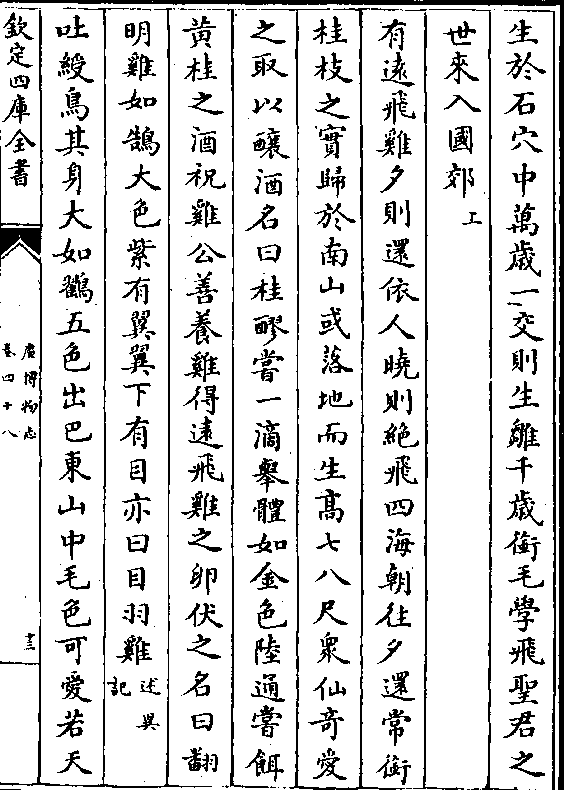 生於石穴中萬歲一交則生雛千歲銜毛學飛聖君之
世來入國郊上
有遠飛雞夕則還依人曉則絕飛四海朝往夕還常銜
桂枝之實歸於南山或落地而生高七八尺衆仙奇愛
之取以釀酒名曰桂醪嘗一滴舉體如金色陸通嘗餌
黄桂之酒祝雞公善養雞得遠飛雞之卵伏之名曰翻
明雞如鵠大色紫有翼翼下有目亦曰目羽雞述異記
吐綬鳥其身大如鸛五色出巴東山中毛色可愛若天
欽定四庫全書
廣博物志
卷四十八
十三